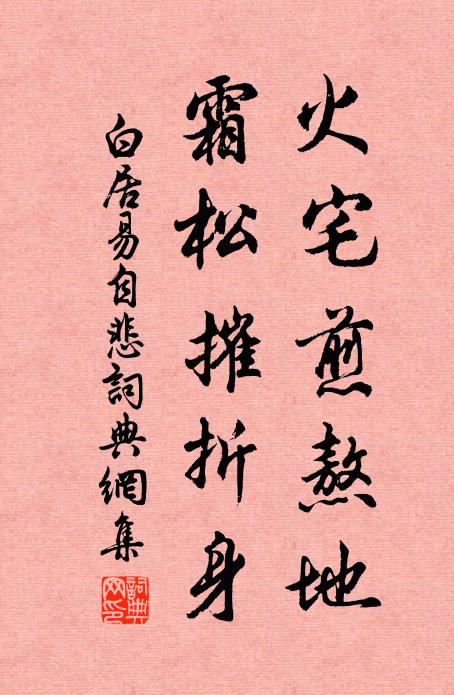 火宅煎熬地
霜松摧折身
白居易自悲詞典網集
詞典網印